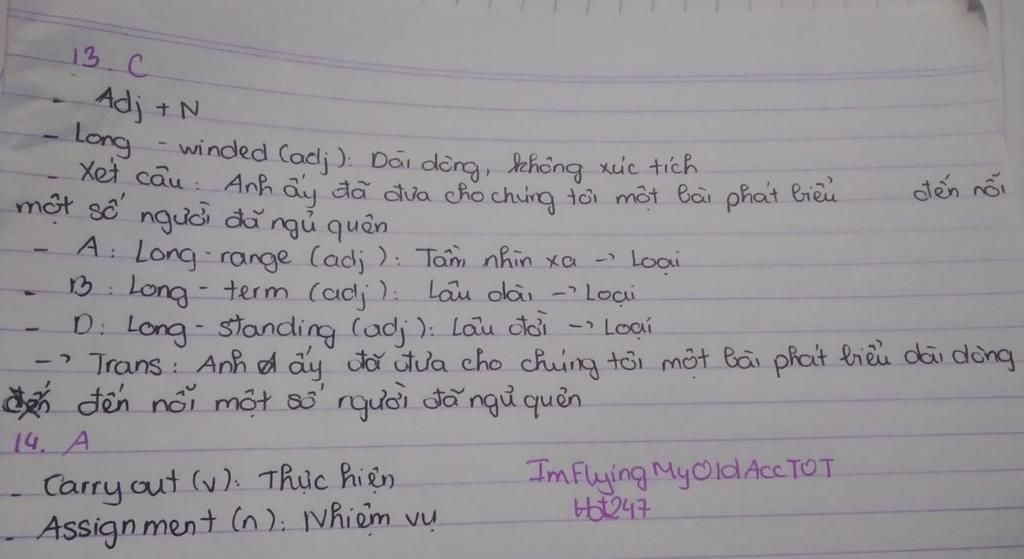 13. C
- Adj + N
- Long - winded (adj): Dài dòng, không xúc tích
- Xét câu: Anh ấy đã đưa cho chúng tôi một bài phát biểu đến nỗi
một số người đã ngủ quên
- A: Long-range (adj): Tầm nhìn xa -> Loại
- B: Long- term (adj): Lâu dài -> Loại
- D: Long- standing (adj): Lâu đời -> Loại
-> Trans: Anh ấy đã đưa cho chúng tôi một bài phát biểu dài dòng
đến nỗi một số người đã ngủ quên
14. A
- Carry out (v): Thực hiện
ImFlyingMyOldAccTOT
- Assignment (n): Nhiệm vụ